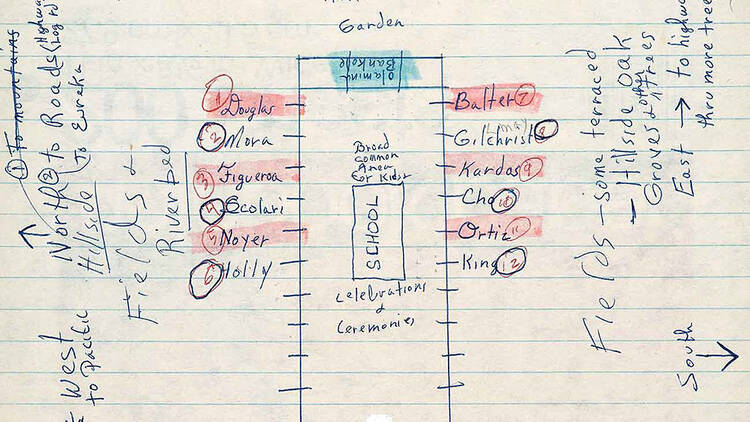 Garden
Olamina
Bankole
① Douglas
② Mora
③ Figueroa
④ Scolari
⑤ Noyer
⑥ Holly
Balter ⑦
Gilchrist ⑧
Kardos ⑨
Cho ⑩
Ortiz ⑪
King ⑫
Broad
common
Area
for Kids
SCHOOL
Celebrations
&
Ceremonies
① To mountains
North ② to Roads
Hillside (To Eureka
Fields &
Riverbed
West
to Pacific
Fields - some terraced
- Hillside Oak
Groves & other trees
East → to highway
thru more tree
South